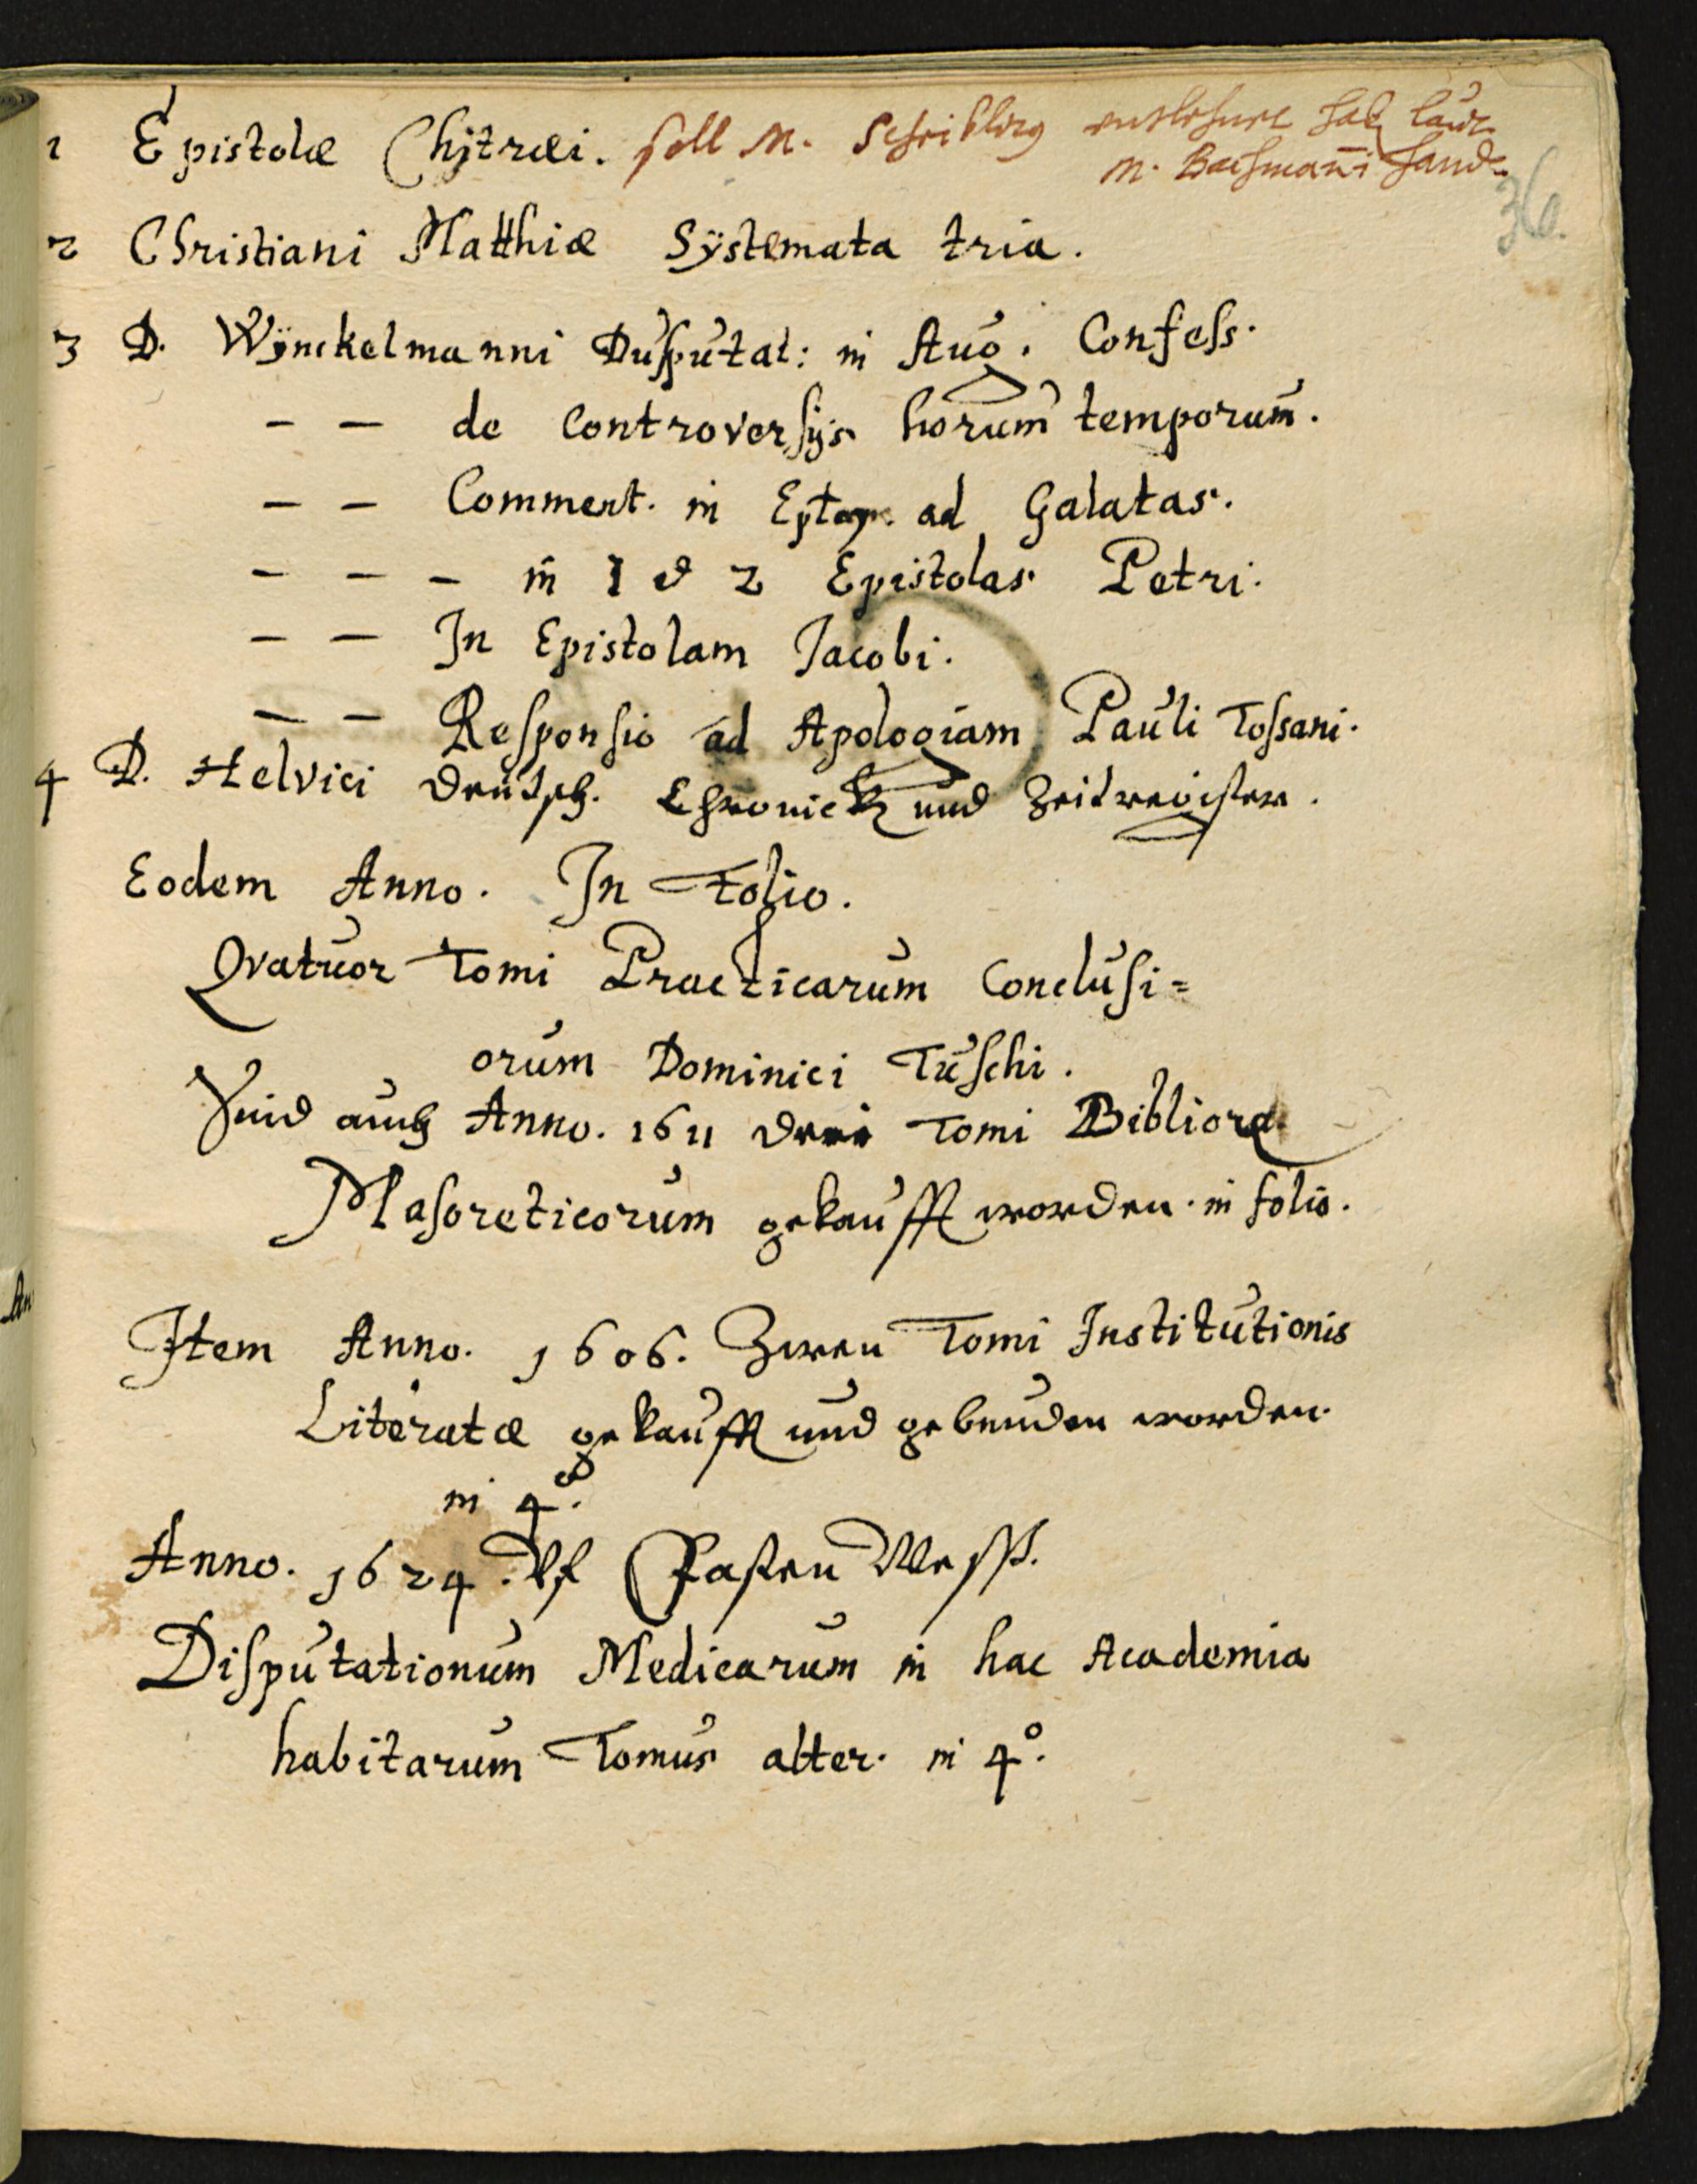 1 Epistolæ Chÿtræi. soll M. Schribling entlehnet hab laut
M. Bachmanni hand.
36.
2 Christiani Matthiæ Sÿstemata tria.
3 D. Wÿnckelmanni Dusputat: in Aug. Confess.
– – de Controversijs horum temporum.
– – Comment. in ad Galatas.
– – – in 1 et 2 Epistolas Petri.
– – In Epistolam Jacobi.
– – Responsio ad Apologiam Pauli Tossani.
4 D. Helvici deutsch. Chronick und Zeitregister.
Eodem Anno. In Folio.
Qvatuor Tomi Practicarum Conclusi=
orum Dominici Tuschi.
Seind auch Anno. 1611 drei Tomi Bibliorū
Masoreticorum gekaufft worden. in folio.
Item Anno. 1606. Zween Tomi Institutionis
Literatæ gekaufft und gebunden worden.
in 4°.
Anno. 1624. Vf Fasten Mess.
Disputationum Medicarum in hac Academia
habitarum Tomus alter. in 4°.